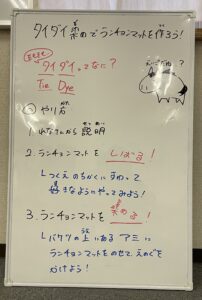 タイダイ染めでランチョンマットを作ろう!
タイダイってなに?
Tie Dye
やり方
1. みなさんから 説明
2. ランチョンマットを しばる!
Lつくえのちかくにすわって
好きなようにやってみよう!
3. ランチョンマットを 染める!
Lバケツの上にある アミに
ランチョンマットをのせて、えのぐを
かけよう!